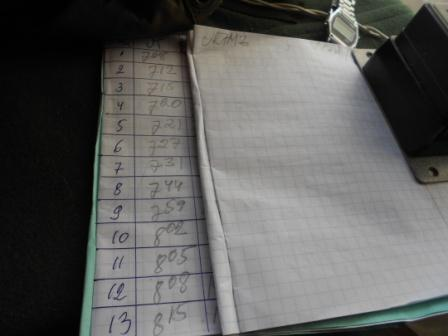 1 708
2 712
3 715
4 720
5 721
6 727
7 73
8 744
9 759
10 8 02
11 8 05
12 8 08
13 8 15